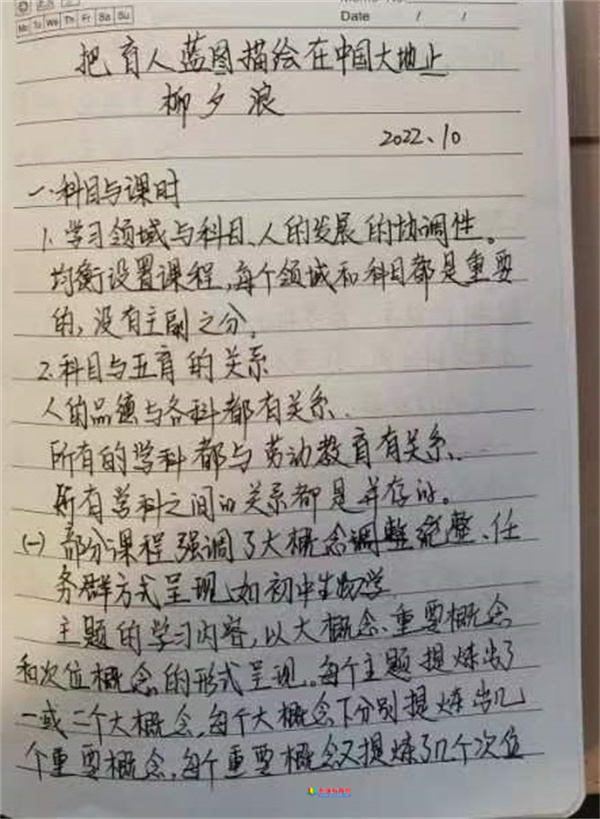 Mo Tu We Th Fr Sa Su
Memo No.
Date / /
把育人蓝图描绘在中国大地上
柳夕浪
2022、10
一、科目与课时
1. 学习领域与科目、人的发展的协调性。
均衡设置课程,每个领域和科目都是重要
的,没有主副之分。
2. 科目与五育的关系
人的品德与各科都有关系、
所有的学科都与劳动教育有关系、
所有学科之间的关系都是并存的。
(一) 部分课程强调了大概念调整统整、任
务群方式呈现、如初中生物学
主题的学习内容,以大概念、重要概念
和次位概念的形式呈现。每个主题提炼出了
一或二个大概念,每个大概念下分别提炼出几
个重要概念,每个重要概念又提炼了几个次位